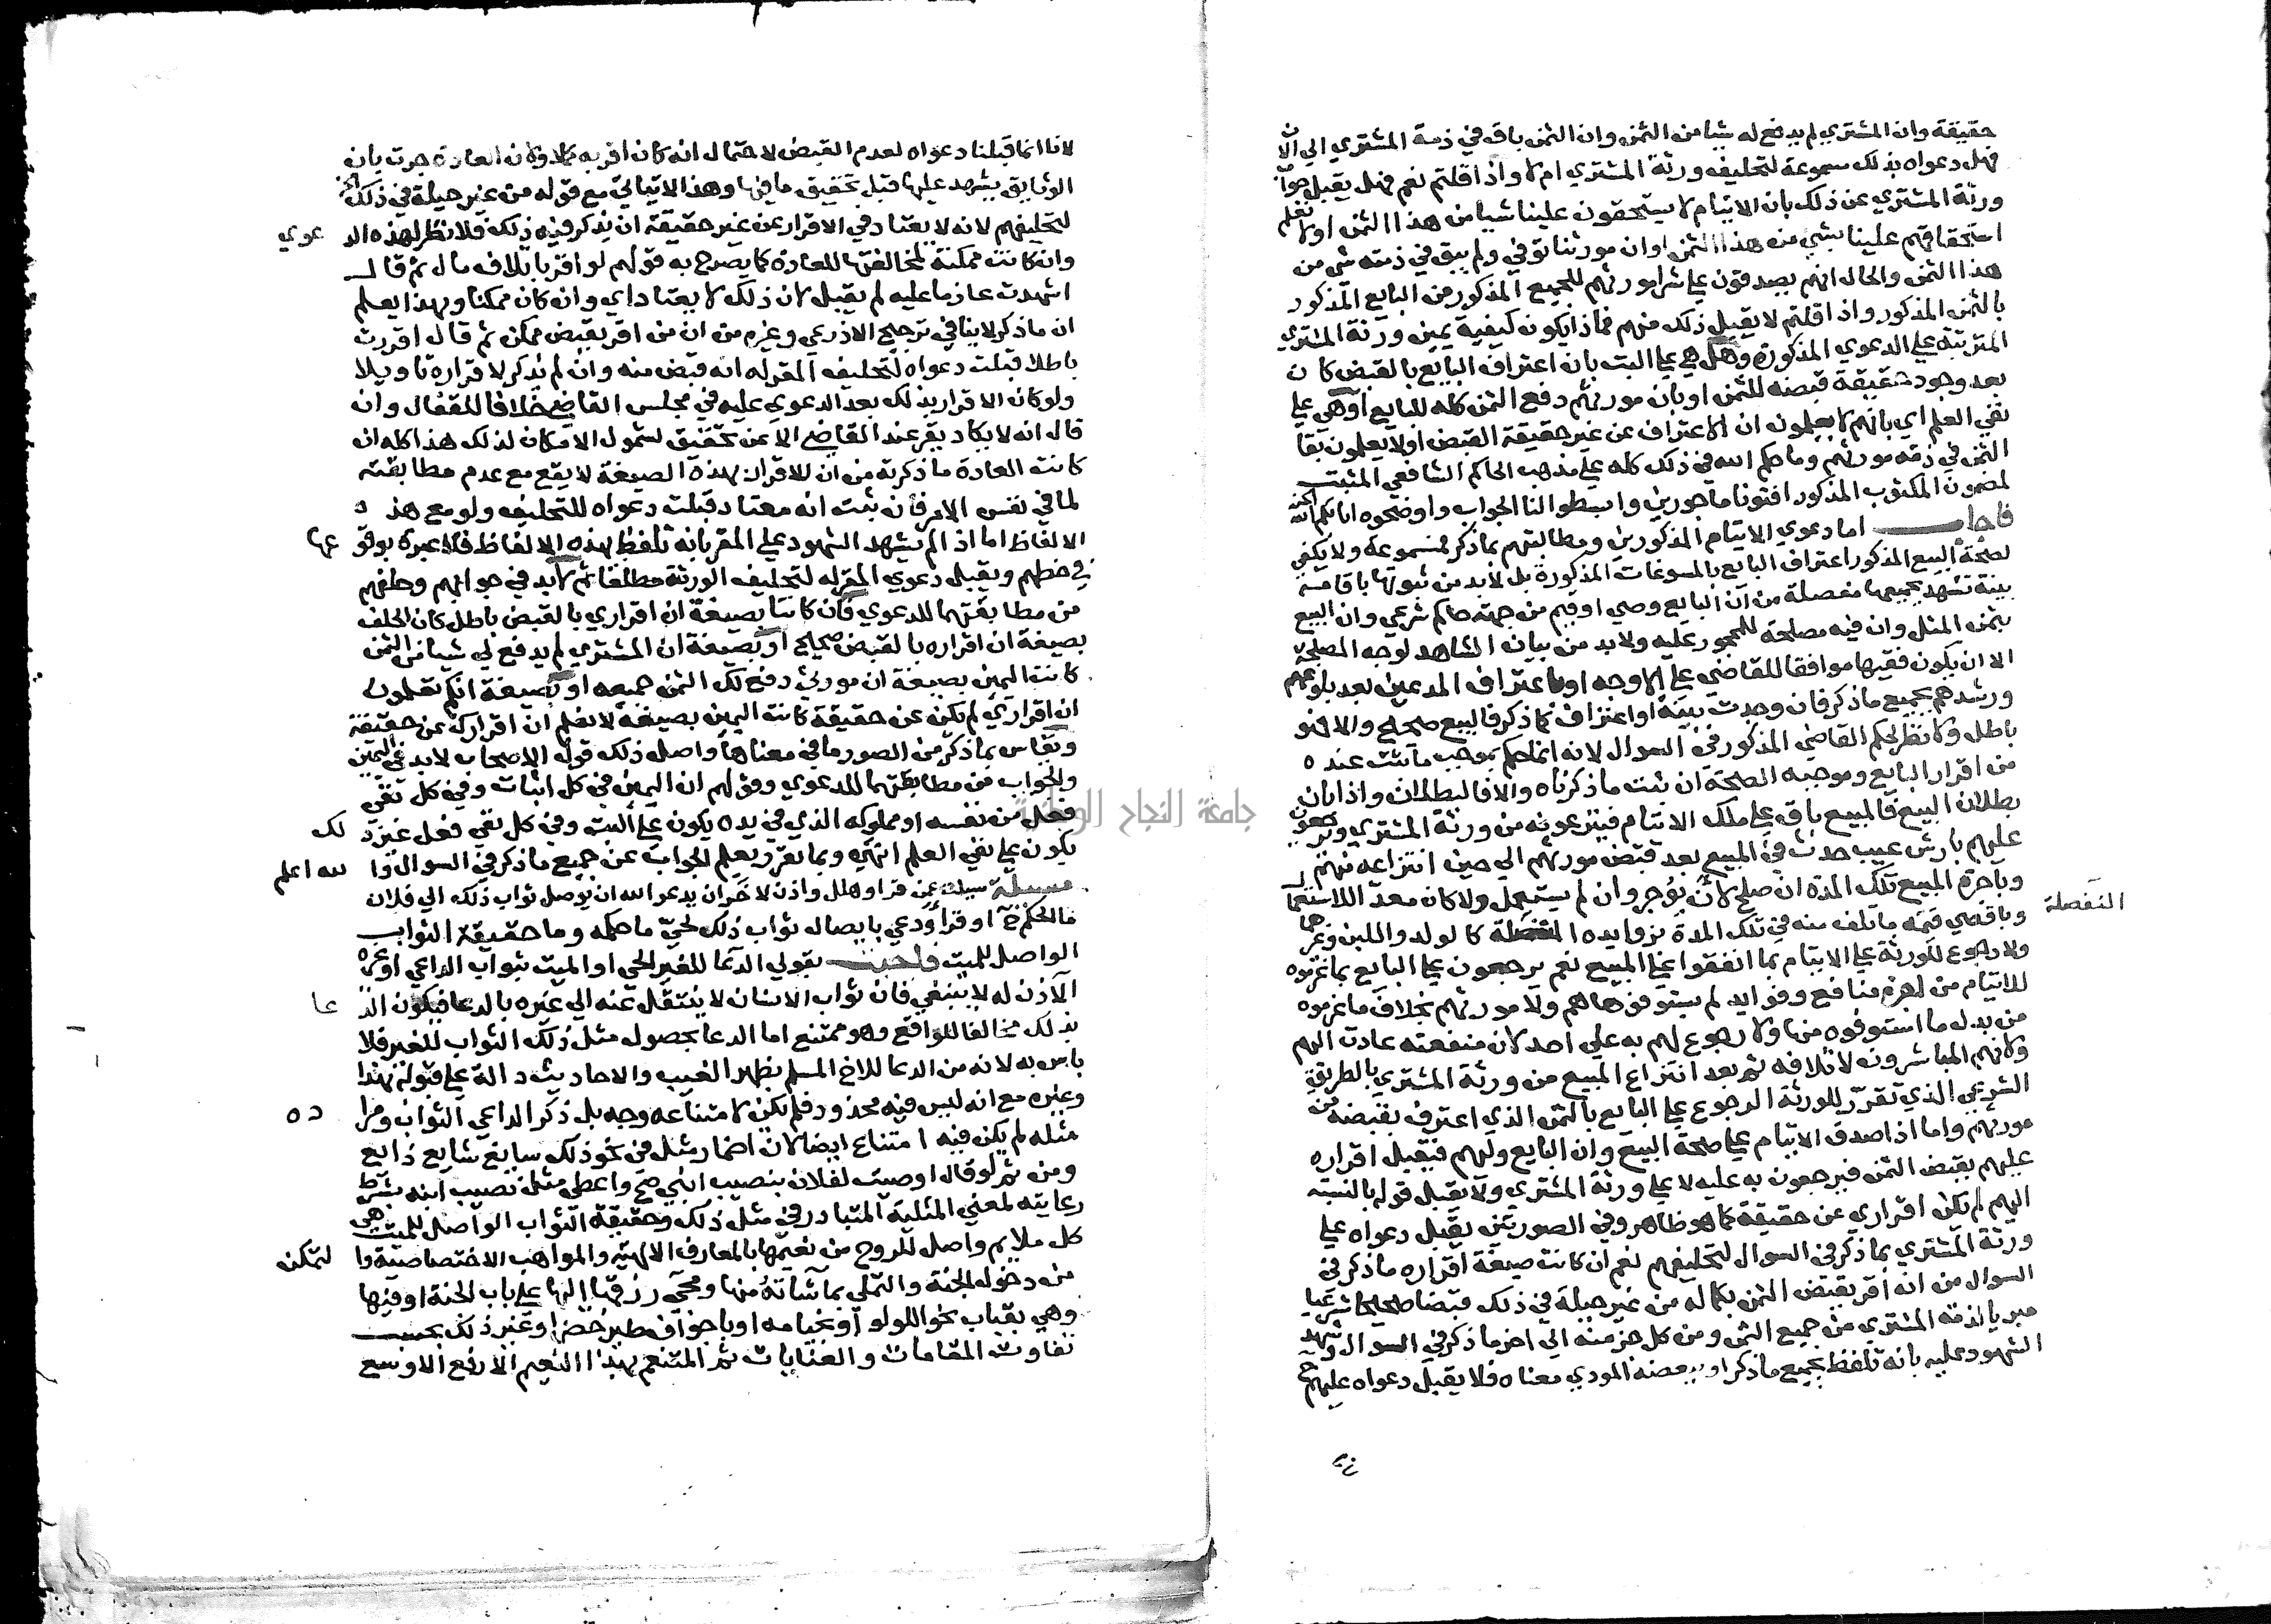 حقيقة وان المشتري لم يدفع له شيا من الثمن وان الثمن باق في ذمة المشتري الي الان
فهل دعواه بذلك مسموعة لتحليف ورثة المشتري ام لا واذا قلتم نعم فهل يقبل جواب
ورثة المشتري عن ذلك بان الايتام لا يستحقون علينا شيا من هذا الثمن او لا نعلم
استحقاقهم علينا بشي من هذا الثمن او ان مورثنا توفي ولم يبق في ذمته شي من
هذا الثمن والحال انهم يصدقون علي شرا مورثهم للجميع المذكور من البايع المذكور
بالثمن المذكور واذا قلتم لا يقبل ذلك منهم فماذا يكون كيفية يمين ورثة المشتري
المترتبة علي الدعوي المذكورة وهل هي علي البت بان اعتراف البايع بالقبض كان
بعد وجود حقيقة قبضه للثمن او بان مورثهم دفع الثمن كله للبايع او هي علي
نفي العلم اي بانهم لا يعلمون ان الاعتراف عن غير حقيقة القبض اولا يعلمون بقا
الثمن في ذمة مورثهم وما حكم الله في ذلك كله علي مذهب الحاكم الشافعي المثبت
لمضمون المكتوب المذكور افتونا ماجورين وابسطوا لنا الجواب واوضحوه اثابكم الله الجنة
فاجاب اما دعوي الايتام المذكورين ومطالبتهم بما ذكر فمسموعة ولا يكفي
لصحة البيع المذكور اعتراف البايع بالمسوغات المذكورة بل لا بد من ثبوتها باقامة
بينة تشهد بجميعها مفصلة من ان البايع وصي او قيم من جهة حاكم شرعي وان البيع
بثمن المثل وان فيه مصلحة للمحجور عليه ولا بد من بيان الشاهد لوجه المصلحة
الا ان يكون فقيها موافقا للقاضي علي الاوجه او باعتراف المدعين بعد بلوغهم
ورشدهم بجميع ما ذكر فان وجدت بينة او اعتراف بما ذكر فالبيع صحيح والا فهو
باطل ولا نظر لحكم القاضي المذكور في السوال لانه انما حكم بموجب ما ثبت عنده
من اقرار البايع وموجبه الصحة ان ثبت ما ذكرناه والا فالبطلان واذا بان
بطلان البيع فالمبيع باق علي ملك الايتام فينتزعونه من ورثة المشتري ويرجعون
عليهم بارش عيب حدث في المبيع بعد قبض مورثهم الي حين انتزاعه منهم
وباجرة المبيع تلك المدة ان صلح لان يوجر وان لم يستعمل ولا كان معدا للاستعمال
وباقصي قيمه ما تلف منه في تلك المدة بزوايده المنفصلة كالولد واللبن وغيرهما
المنفصلة
ولا رجوع للورثة علي الايتام بما انفقوا علي المبيع نعم يرجعون علي البايع بما غرموه
للايتام من اجرة منافع وفوايد لم يستوفوها هم ولا مورثهم بخلاف ما غرموه
من بدل ما استوفوه منها ولا رجوع لهم به علي احد لان منفعته عادت اليهم
ولانهم المباشرون لاتلافه ثم بعد انتزاع المبيع من ورثة المشتري بالطريق
الشرعي الذي تقرر للورثة الرجوع علي البايع بالثمن الذي اعترف بقبضه من
مورثهم واما اذا صدق الايتام علي صحة البيع وان البايع وليهم فيقبل اقراره
عليهم بقبض الثمن فيرجعون به عليه لا علي ورثة المشتري ولا يقبل قوله بالنسبة
اليهم لم يكن اقراري عن حقيقة كما هو ظاهر وفي الصورتين يقبل دعواه علي
ورثة المشتري بما ذكر في السوال لتحليفهم نعم ان كانت صيغة اقراره ما ذكر في
السوال من انه اقر بقبض الثمن بكماله من غير حيلة في ذلك قبضا صحيحا شرعيا
مبريا لذمة المشتري من جميع الثمن ومن كل جز منه الي اخر ما ذكر في السوال وشهد
الشهود عليه بانه تلفظ بجميع ما ذكر او ببعضه المودي معناه فلا يقبل دعواه عليهم
لانا انما قبلنا دعواه لعدم القبض لاحتمال انه كان اقر به ولان العادة جرت بان
الوثايق يشهد عليها قبل تحقيق ما فيها وهذا لا يتاتي مع قوله من غير حيلة في ذلك
لتحليفهم لانه لا يعتاد في الاقرار عن غير حقيقة ان يذكر فيه ذلك فلا نظر لهذه الدعوي
وان كانت ممكنة لمخالفتها للعادة كما يصرح به قولهم لو اقر باتلاف مال ثم قال
اشهدت عازما عليه لم يقبل لان ذلك لا يعتاد اي وان كان ممكنا وبهذا يعلم
ان ما ذكر لا ينافي ترجيح الاذرعي وغيره من ان من اقر بقبض ممكن ثم قال اقررت
باطلا قبلت دعواه لتحليف المقر له انه قبض منه وان لم يذكر لاقراره تاويلا
ولو كان الاقرار بذلك بعد الدعوي عليه في مجلس القاضي خلافا للقفال وان
قال انه لا يكاد يقر عند القاضي الا عن تحقيق لشمول الامكان لذلك هذا كله ان
كانت العادة ما ذكرته من ان الاقرار بهذه الصيغة لا يقع مع عدم مطابقته
لما في نفس الامر فان ثبت انه معتاد قبلت دعواه للتحليف ولو مع هذه
الالفاظ اما اذا لم يشهد الشهود علي المقر بانه تلفظ بهذه الالفاظ فلا عبرة بوقوعها
في خطهم ويقبل دعوي المقر له لتحليف الورثة مطلقا ثم لا بد في جوابهم وحلفهم
من مطابقتهما للدعوي فان كانتا بصيغة ان اقراري بالقبض باطل كان الحلف
بصيغة ان اقراره بالقبض صحيح او بصيغة ان المشتري لم يدفع لي شيا من الثمن
كانت اليمين بصيغة ان مورثي دفع لك الثمن جميعه او بصيغة انكم تعلمون
ان اقراري لم يكن عن حقيقة كانت اليمين بصيغة لا نعلم ان اقرارك عن حقيقة
ويقاس بما ذكر من الصور ما في معناها واصل ذلك قول الاصحاب لا بد في اليمين
والجواب من مطابقتهما للدعوي وقولهم ان اليمين في كل اثبات وفي كل نفي
فعل من نفسه او مملوكه الذي في يده يكون علي البت وفي كل نفي فعل غير ذلك
يكون علي نفي العلم انتهي وبما تقرر يعلم الجواب عن جميع ما ذكر في السوال والله اعلم
مسيلة سيلت عن من قرا وهلل واذن لاخر ان يدعو الله ان يوصل ثواب ذلك الي فلان
ما الحكم فيه او قرا ودعي بايصال ثواب ذلك لحي ما حكمه وما حقيقة الثواب
الواصل للميت فاجبت بقولي الدعا للغير الحي او الميت بثواب الداعي او غيره
الاذن له لا ينبغي فان ثواب الانسان لا ينتقل عنه الي غيره بالدعا فيكون الدعا
بذلك مخالفا للواقع وهو ممتنع اما الدعا بحصول مثل ذلك الثواب للغير فلا
باس به لانه من الدعا للاخ المسلم بظهر الغيب والاحاديث دالة علي قبوله بهذا
وغيره مع انه ليس فيه محذور فلم يكن لامتناعه وجه بل ذكر الداعي الثواب ومراده
مثله لم يكن فيه امتناع ايضا لان اضمار مثل في نحو ذلك سايغ شايع ذايع
ومن ثم لو قال اوصيت لفلان بنصيب ابني صح واعطي مثل نصيب ابنه بشرط
رعايته لمعني المثلية المتبادر في مثل ذلك وحقيقة الثواب الواصل للميت هي
كل ملايم واصل للروح من نعيمها بالمعارف الالهية والمواهب الاختصاصية والتمكن
من دخول الجنة والتملي بما شاته منها ومجي رزقها اليها علي باب الجنة او فيها
وهي بقباب نحو اللولو او بخيامه او باجواف طير خضر او غير ذلك بحسب
تفاوت المقامات والعنايات ثم المتنعم بهذا النعيم الارفع الاوسع
جامعة النجاح الوطنية